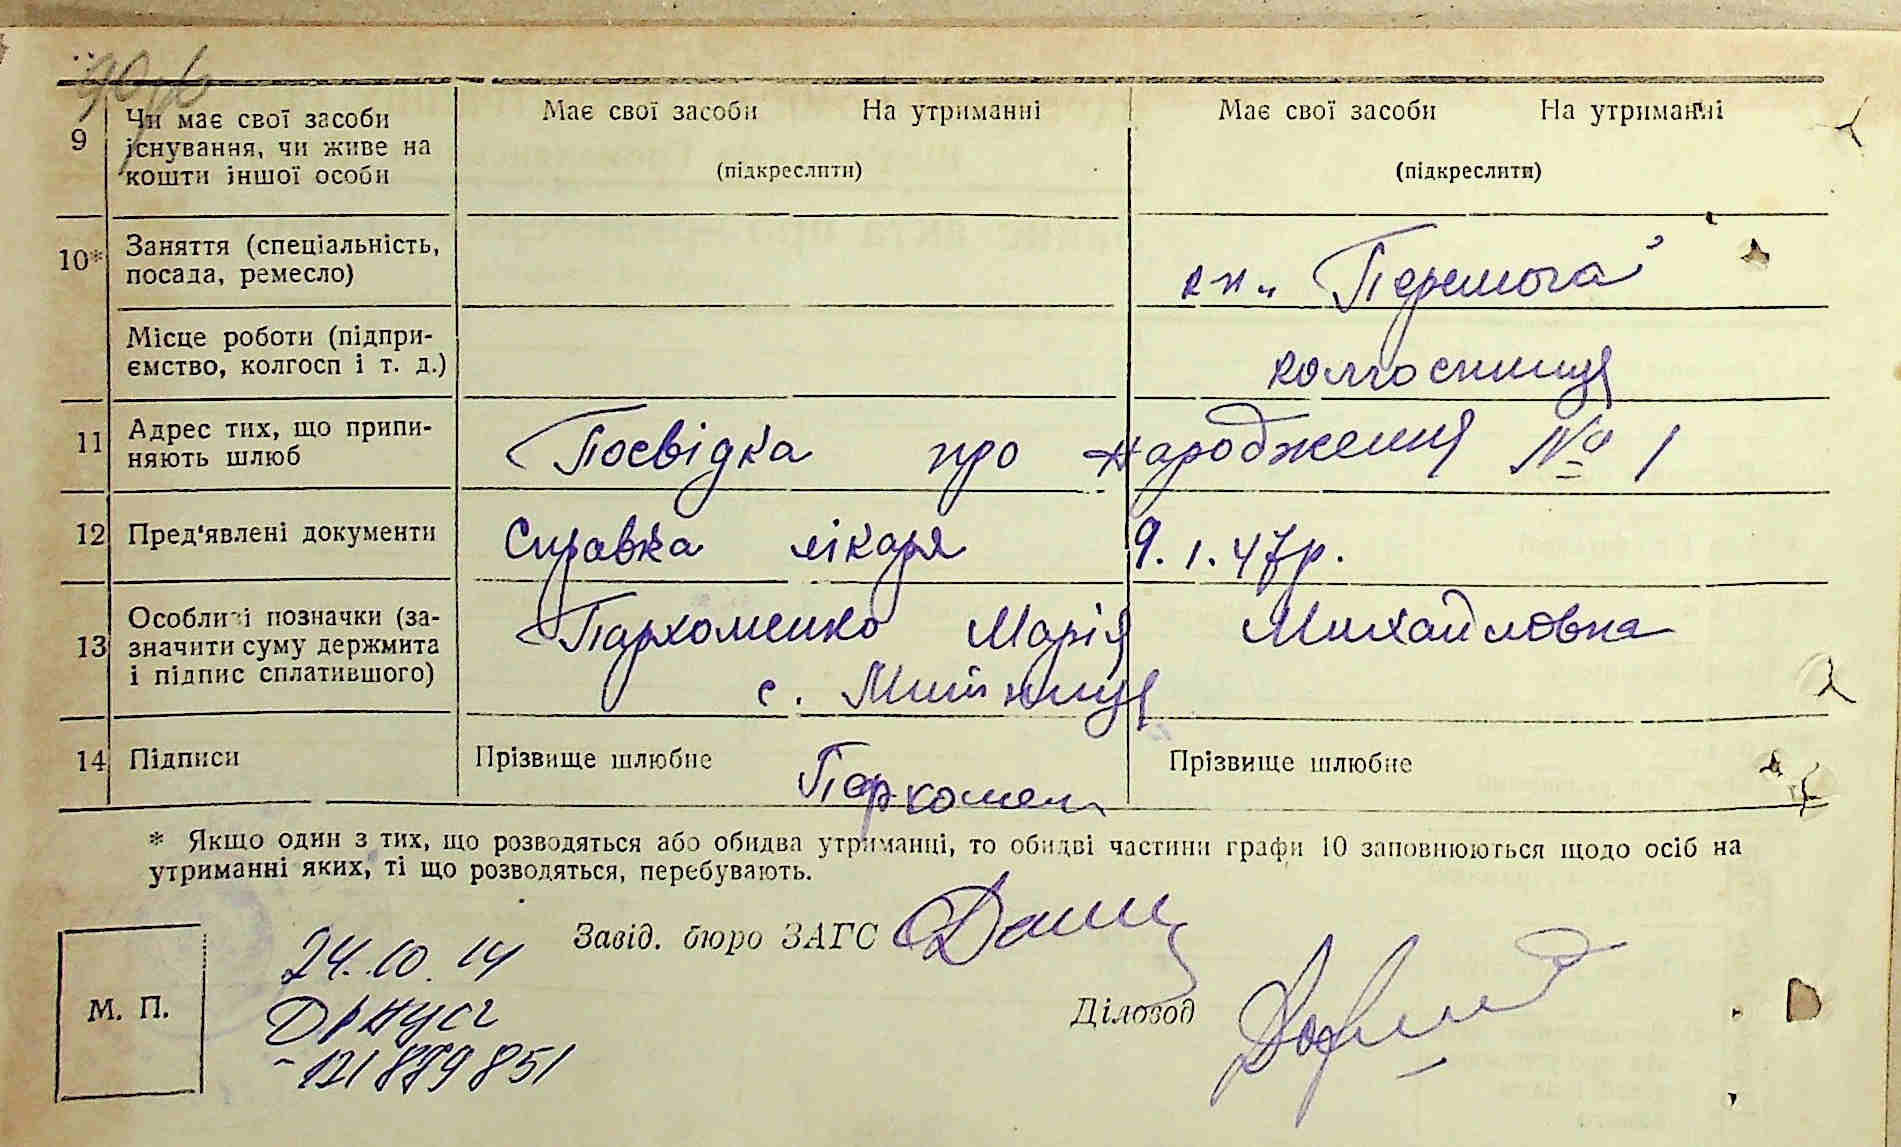 9 Чи має свої засоби існування, чи живе на кошти іншої особи
Має свої засоби На утриманні
(підкреслити)
Має свої засоби На утриманні
(підкреслити)
10* Заняття (спеціальність, посада, ремесло)
кн. „Перемога"
Місце роботи (підпри-
ємство, колгосп і т. д.)
колгоспниця
11 Адрес тих, що припи-
няють шлюб
Посвідка про народження № 1
12 Пред'явлені документи
Справка лікаря 9.1.47р.
13 Особливі позначки (за-
значити суму держмита
і підпис сплатившого)
Пархоменко Марія Михайловна
с. Митниця
14 Підписи
Прізвище шлюбне Пархомен
Прізвище шлюбне
* Якщо один з тих, що розводяться або обидва утриманні, то обидві частини графи 10 заповнюються щодо осіб на
утриманні яких, ті що розводяться, перебувають.
Завід. бюро ЗАГС
М. П.
24.10.14
Діловод
-121889851